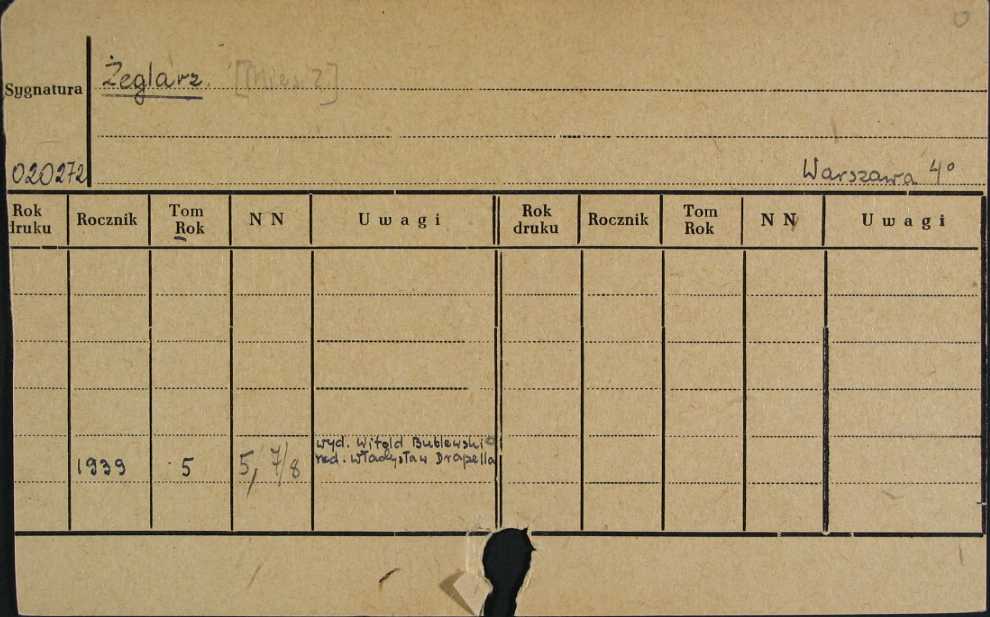 Żeglarz.
Sygnatura
020272
Warszawa 4°
Rok druku Rocznik Tom Rok N N Uwagi Rok druku Rocznik Tom Rok N N Uwagi
wyd. Witold Bublewski
1939 5 5, 7/8 red. Władysław Drapella